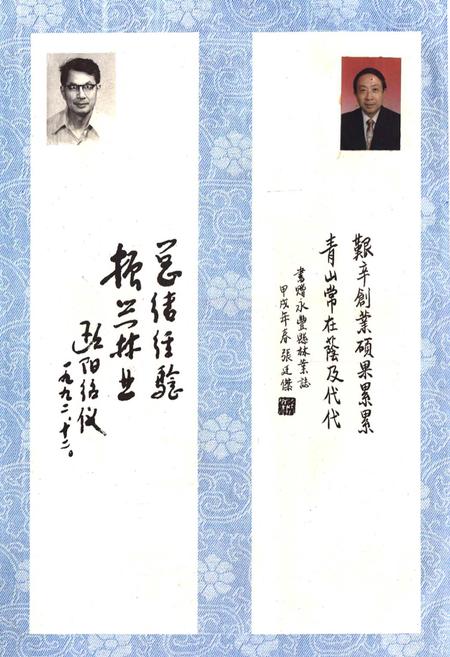 艱辛創業碩果累累
青山常在蔭及代代
書贈永豐縣林業誌
甲戌年春張廷傑
总结经验
振兴林业
欧阳绍仪
一九九二、十二。